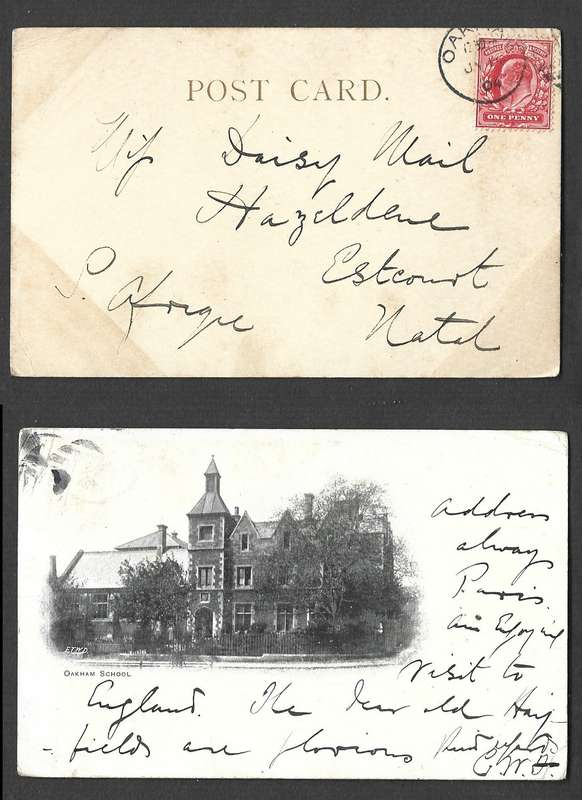 OAKHAM
JY
04
ONE PENNY
POST CARD.
Daisy Mail
Hazeldene
Estcourt
S. Africa
Natal
Address
always
Paris.
Am Enjoying
visit to
England. The dear old Hay
-fields are glorious Kind regards
C.W.
E.T.W.D.
OAKHAM SCHOOL